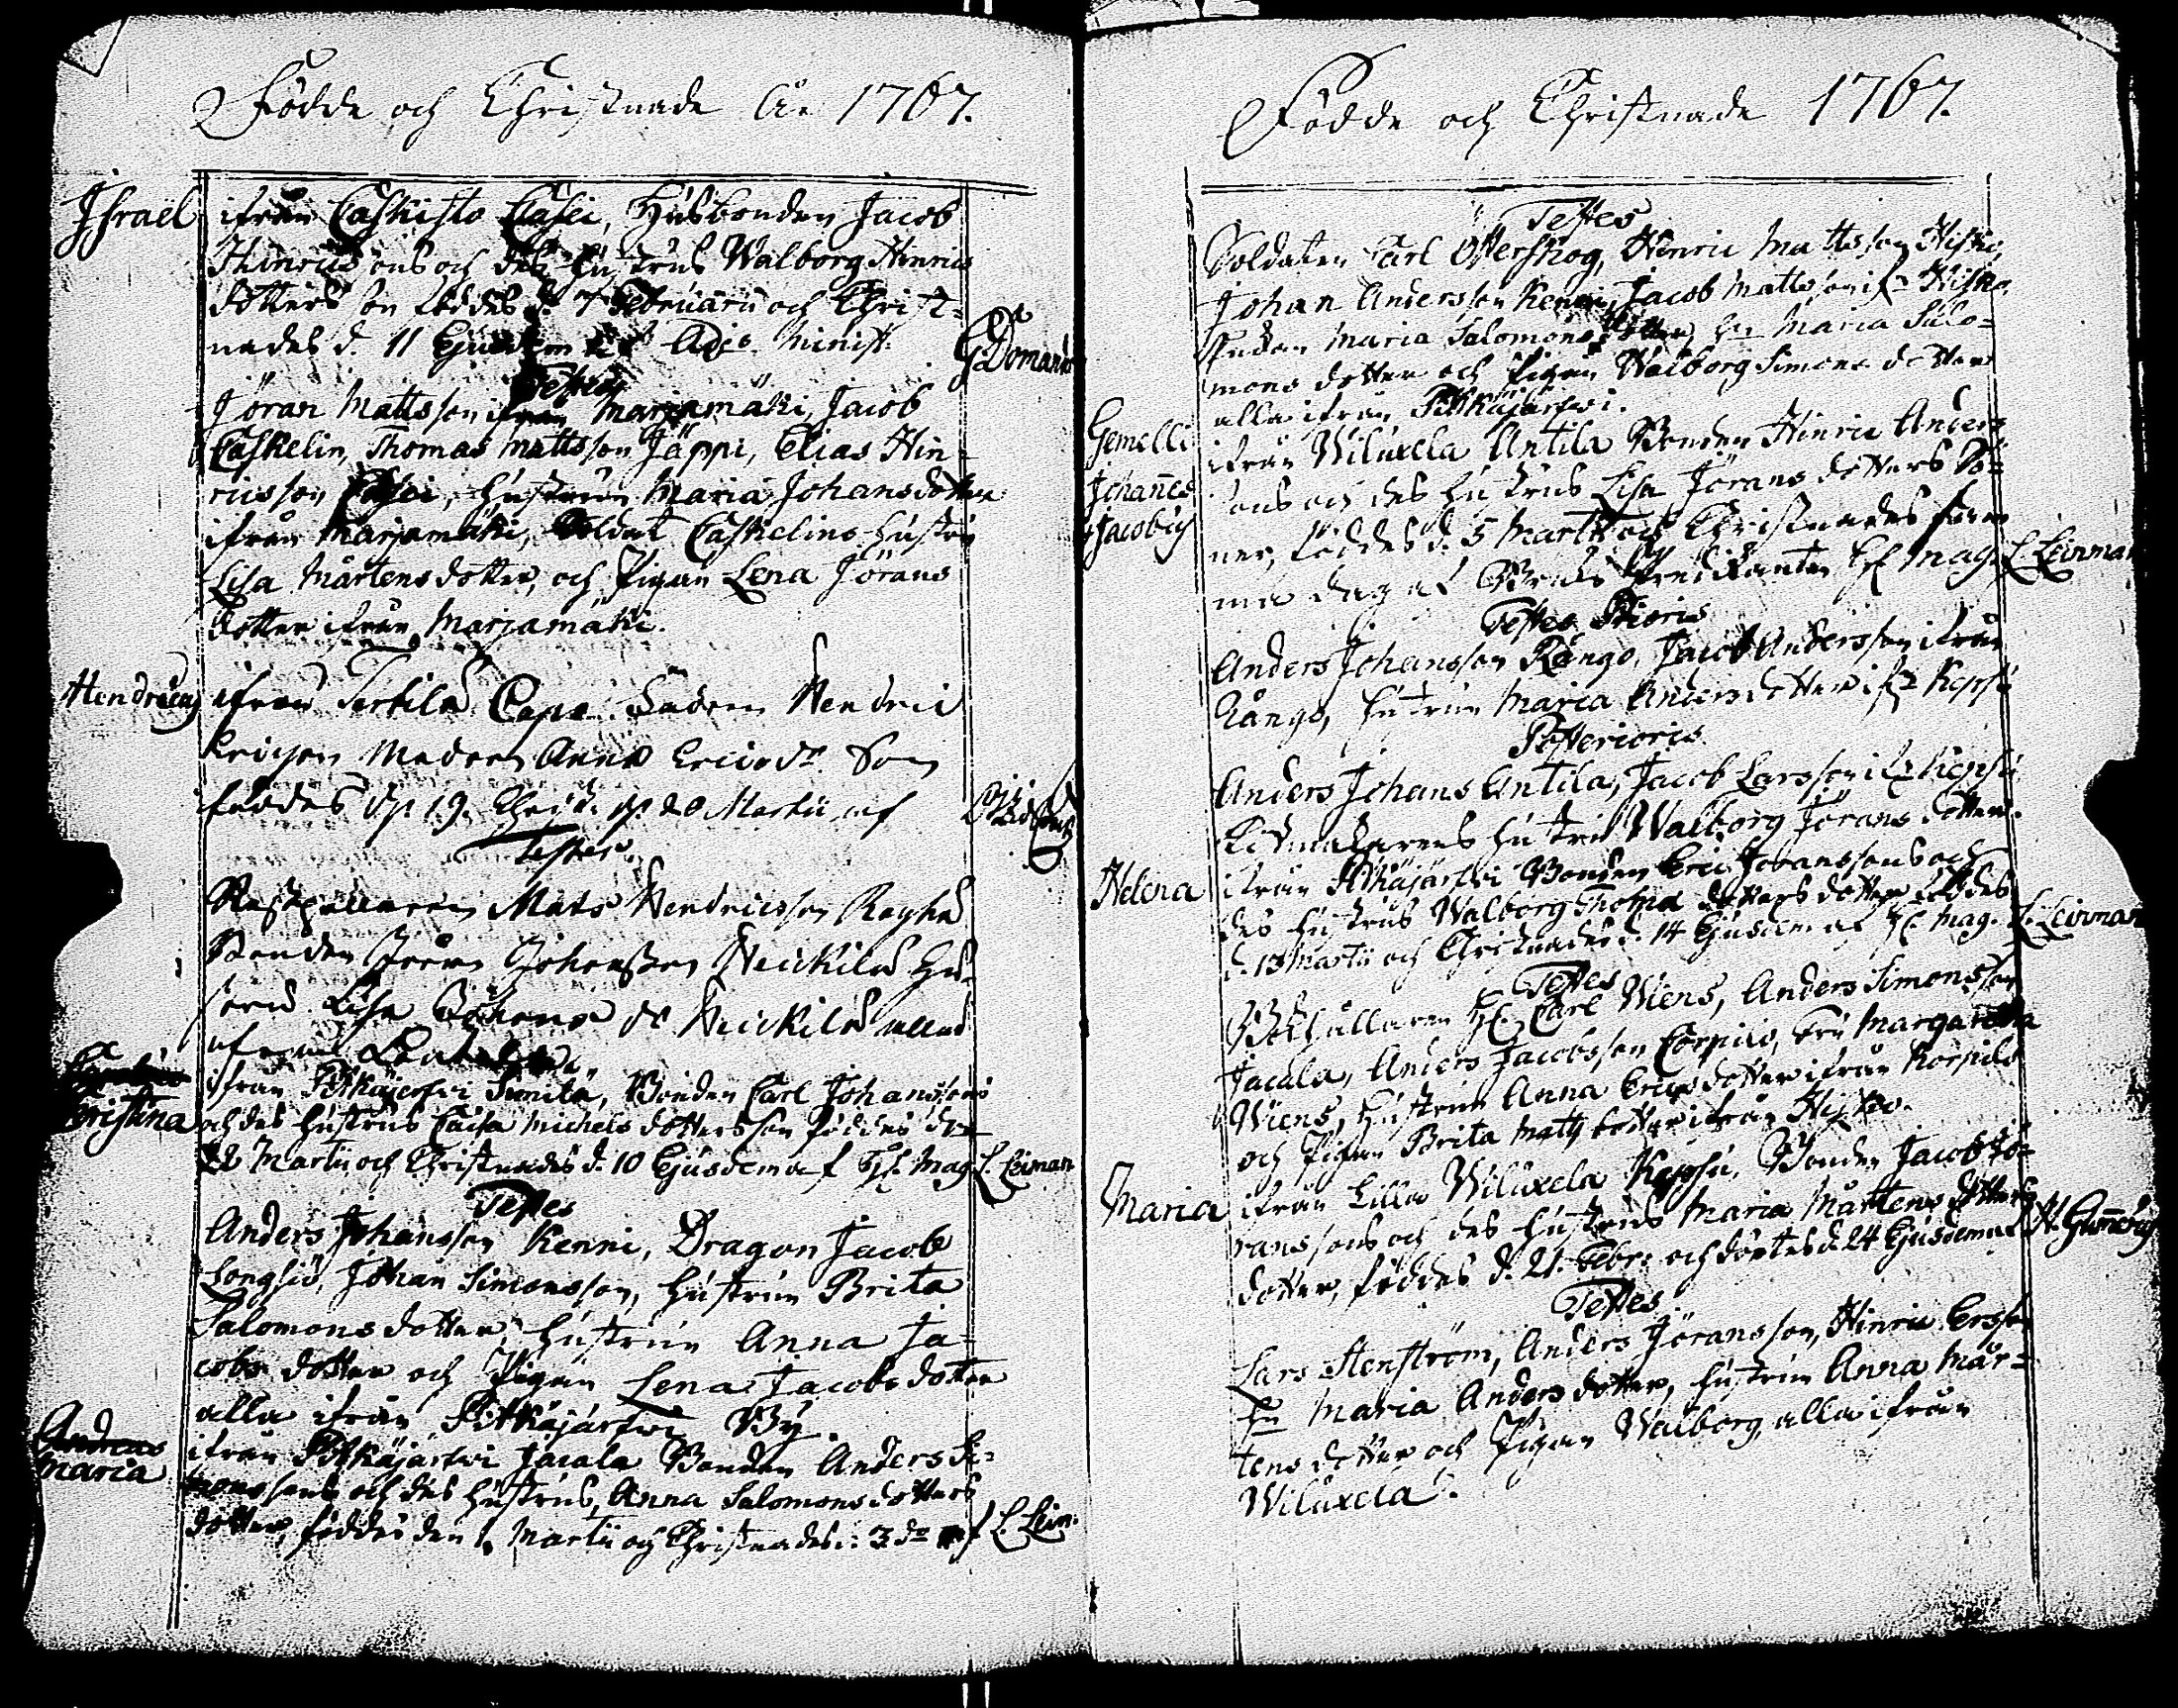 Födde och Christnade År 1767.
Israël
ifrån Caskisto Casei, Husbonden Jacob
Hinrics sons och des hustrus Walborg Hinrics
dotters son föddes d. 7 Februarii och Christ-
nades d. 11 Ejusdem af Adj. Minist. G. Domand
Testes
Jöran Mattsson ifrån Marjamäki, Jacob
Caskelin, Thomas Mattsson Jäppi, Elias Hin-
ricsson Casei, hustrun Maria Johansdotter
ifrån Marjamäki, Soldat Caskelins hustru
Lisa Mårtensdotter, och Pigan Lena Jörans
dotter ifrån Marjamäki.
Hendricus
ifrån Tertila Fadren Hendric
Ericson Modren Anna Ericsdr Son
föddes dp. 19. Christ. dp. 20 Martii af
Testes
Mats Hendricsson
Bonden Johansson Heickilä Hu-
stru Lisa dr Heickilä alla
ifrån
Christina
ifrån Pitkäjerfwi Simila, Bonden Carl Johanssons
och des hustrus Caisa Michels dotters son föddes den
Martii och Christnades d. 10 Ejusdem af H. Mag. L. Leinman
Testes
Anders Johansson Kenni, Dragon Jacob
Longsiö, Johan Simonsson, hustrun Brita
Salomonsdotter, hustrun Anna Ja-
cobs dotter och Pigan Lena Jacobs dotter
alla ifrån Pitkäjärfwi By.
Andreas
Maria
ifrån Pitkäjärfwi Jacala Bonden Anders Si-
monssons och des hustrus, Anna Salomons dotters
dotter, föddes den 1. Martii och Christnades d. 3 do af L. Lein.
Födde och Christnade 1767.
Testes
Soldaten Carl Osterskog, Hinric Mattsson Hisko,
Johan Andersson Kenni, Jacob Mattsson ifr. Hisko,
Maria Salomonsdotter, Hu Maria Salo-
mons dotter och Pigan Walborg Simons dotter
alla ifrån Pitkäjärfwi.
Gemelli
Johannes
& Jacobus
ifrån Wiluxela Antila Bonden Hinric Anders
sons och des hustrus Lisa Jörans dotters Sö-
ner, föddes d. 5 Martii och Christnades samma
dag af Bruks Predikanten H. Mag. L. Leinman
Testes Prioris
Anders Johansson Rångo, Jacob Andersson ifrån
Rångo, hustrun Maria Andersdotter ifr. Kepsu
Posterioris
Anders Johans Antila, Jacob Larsson ifr. Kepsu
hustru Walborg Jörans dotter.
Helena
ifrån Pitkäjärfwi Bonden Eric Johanssons och
des hustrus Walborg Thomæ dotters dotter föddes
d. 13 Martii och Christnades d. 14 Ejusdem af H. Mag. L. Leinman
Testes
Bokhållaren H. Carl Wiens, Anders Simonsson
Jacala, Anders Jacobsson Corpila, Fru Margaretha
Wiens, hustrun Anna Ericsdotter ifrån Korpila
och Pigan Brita Matts dotter ifrån Hisko.
Maria
ifrån Lilla Wiluxela Kepsu, Bonden Jacob Jö-
ranssons och des hustrus Maria Mårtens dotters
dotter, föddes d. 21. Febr. och döptes d. 24 Ejusdem af H. Gunnerus
Testes
Lars Stenström, Anders Jöransson, Hinric Ersson
Hu Maria Andersdotter, hustrun Anna Mår-
tens dotter och Pigan Walborg, alla ifrån
Wiluxela.